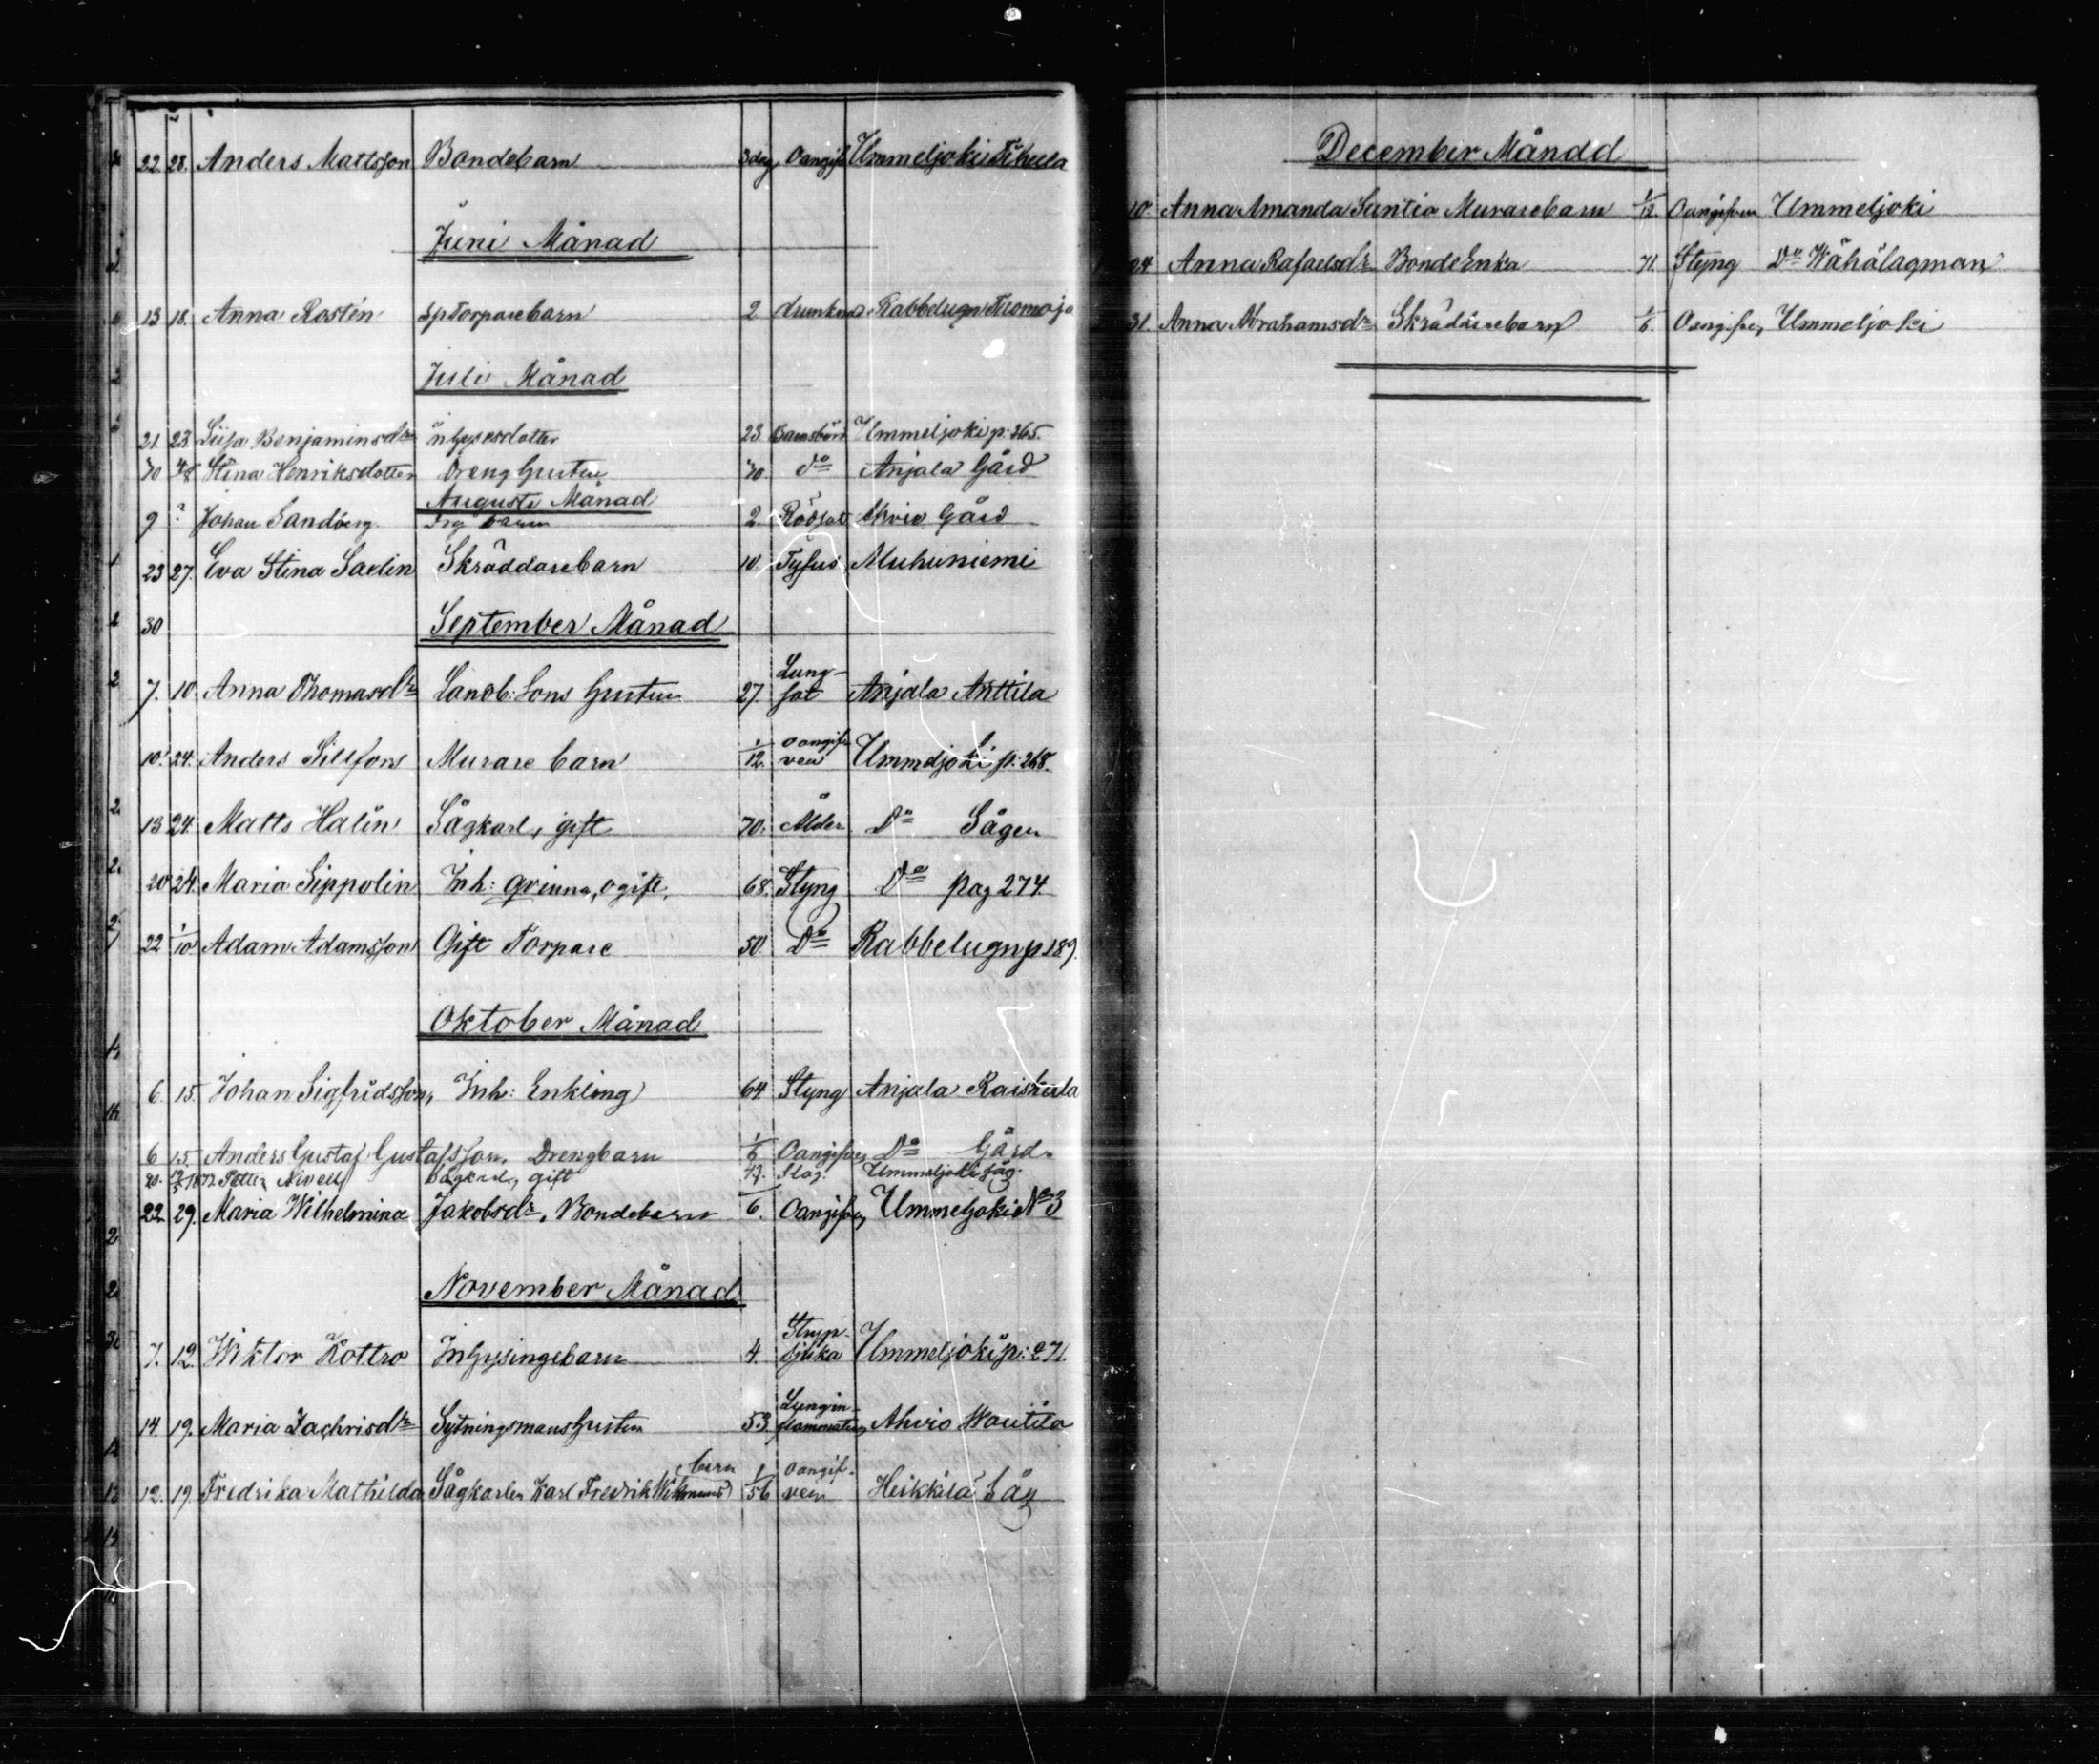 22. 28. Anders Mattsson Bondebarn 3 dag Oangif. Ummeljoki Tikula
Juni Månad
13 18. Anna Rostén sp Torparebarn 2 drunknad Rabbelugn Tuomoja
Juli Månad
21. 23. Siisa Benjaminsdr inhysesdotter 23 Barnsbörd Ummeljoki p: 265.
30 Stina Henriksdotter Drenghustru 30. do Anjala Gård
Augusti Månad
9 ? Johan Sandberg. barn 2. Rödsot Ahvio Gård
23 27. Eva Stina Saelin Skräddarebarn 10. Tyfus Muhuniemi
30 September Månad
7. 10. Anna Thomasdr Landb: Sons hustru 27. Lungsot Anjala Anttila
10. 24. Anders Sillfors Murare barn 1/12. oangifven Ummeljoki p: 268.
13 24. Matts Halin Sågkarl, gift 70. Ålder Do Sågen
20 24. Maria Sippolin Inh: qvinna, ogift, 68. Styng Do pag 274.
22 1/10 Adam Adamsson Gift Torpare 50. Do Rabbelugn p 189.
Oktober Månad
6. 15. Johan Sigfridsson, Inh: Enkling 64 Styng Anjala Raiskula
6 15. Anders Gustaf Gustafsson, Drengbarn 1/6 Oangifven Do Gård.
Petter Sågkarl, gift 47. Slag. Ummeljoki såg.
22. 29. Maria Wilhelmina Jakobsdr, Bondebarn 6. Oangifven Ummeljoki No 3
November Månad
7. 12. Wiktor Kottro Inhysingebarn 4. Strypsjuka Ummeljoki p: 271.
14. 19. Maria Zachrisdr Sytningsmanshustru 53 Lunginflammation Ahvio Woutila
12. 19. Fredrika Mathilda Sågkarlen Karl Fredrik barn 1/56 oangifven Heikkilä Såg
December Måndd
10 Anna Amanda Suntio Murarebarn 1/12. Oangifven Ummeljoki
24 Anna Rafaelsdr BondeEnka 71. Styng Do Wähälagman
31. Anna Abrahamsdr Skräddarebarn 1/6. Oangifven Ummeljoki